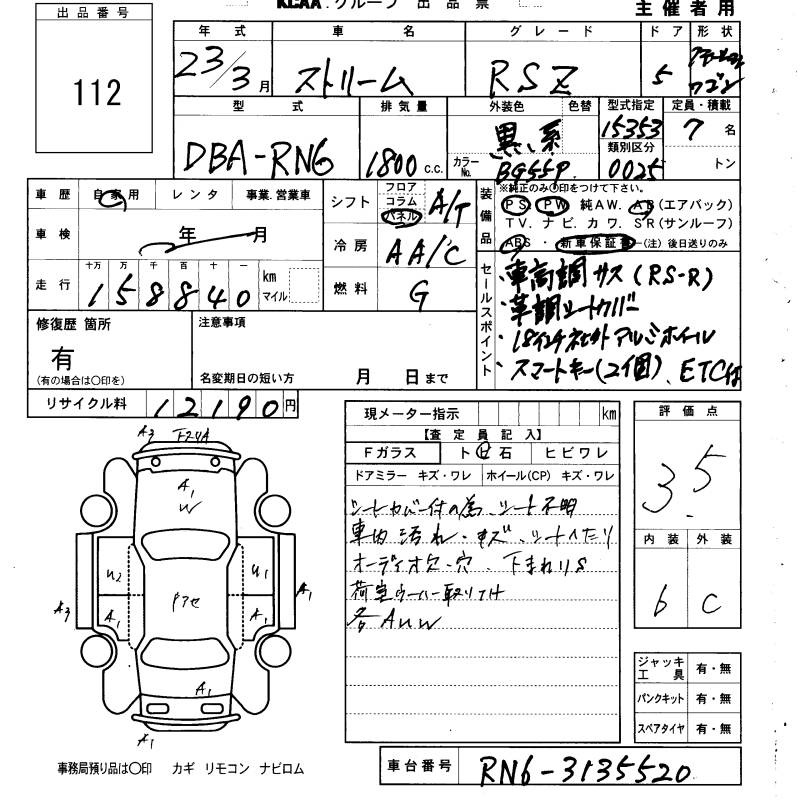 出品番号
112
KCAA.グループ 出品票
主催者用
年式 車名 グレード ドア 形状
23/3月 ストリーム RSZ 5 ワゴン
型式 排気量 外装色 色替 型式指定 定員・積載
DBA-RN6 1800c.c. 黒系 15353 7名
カラーNo. BG55P 類別区分 0025 トン
車歴 自家用 レンタ 事業.営業車
シフト フロア コラム パネル A/T
装備品
※純正のみ〇印をつけて下さい。
PS PW 純AW. AB(エアバック)
TV.ナビ.カワ.SR(サンルーフ)
ABS・新車保証書-(注)後日送りのみ
車検 年 月
冷房 AA/C
走行 十万 万 千 百 十 一
158840 km マイル
燃料 G
セールスポイント
・車高調サス(RS-R)
・革調シートカバー
・18インチ社外アルミホイール
・スマートキー(2個)、ETC付
修復歴 箇所
有
(有の場合は〇印を)
注意事項
名変期日の短い方 月 日まで
リサイクル料 12190円
現メーター指示 km
【査定員記入】
Fガラス ト石 ヒビワレ
ドアミラー キズ・ワレ ホイール(CP) キズ・ワレ
シートカバー付の為、シート不明
車内汚れ・キズ シートヘたり
オーディオ欠・穴 下まわりS
各AUW
評価点
3.5
内装 外装
6 C
A3
A1
W
U2 U1
A3 A1 A1 A1
A1
A1
ジャッキ工具 有・無
パンクキット 有・無
スペアタイヤ 有・無
事務局預り品は〇印 カギ リモコン ナビロム
車台番号 RN6-3135520